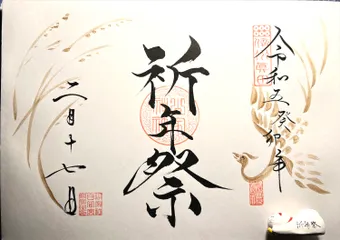 令和五癸卯年
祈年祭
二月十七日
祈年祭